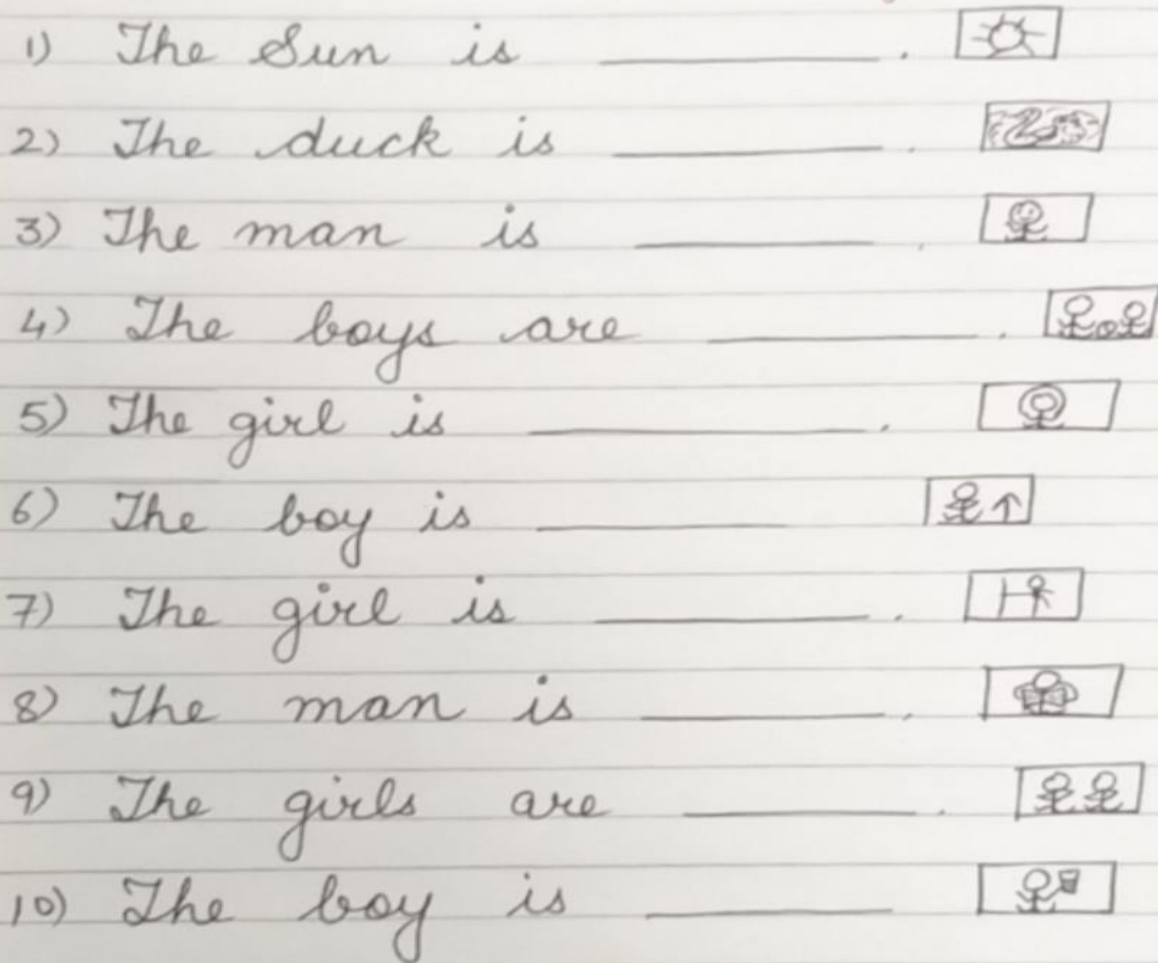 1) The Sun is __________.
2) The duck is __________.
3) The man is __________.
4) The boys are __________.
5) The girl is __________.
6) The boy is __________
7) The girl is __________.
8) The man is __________.
9) The girls are __________.
10) The boy is __________